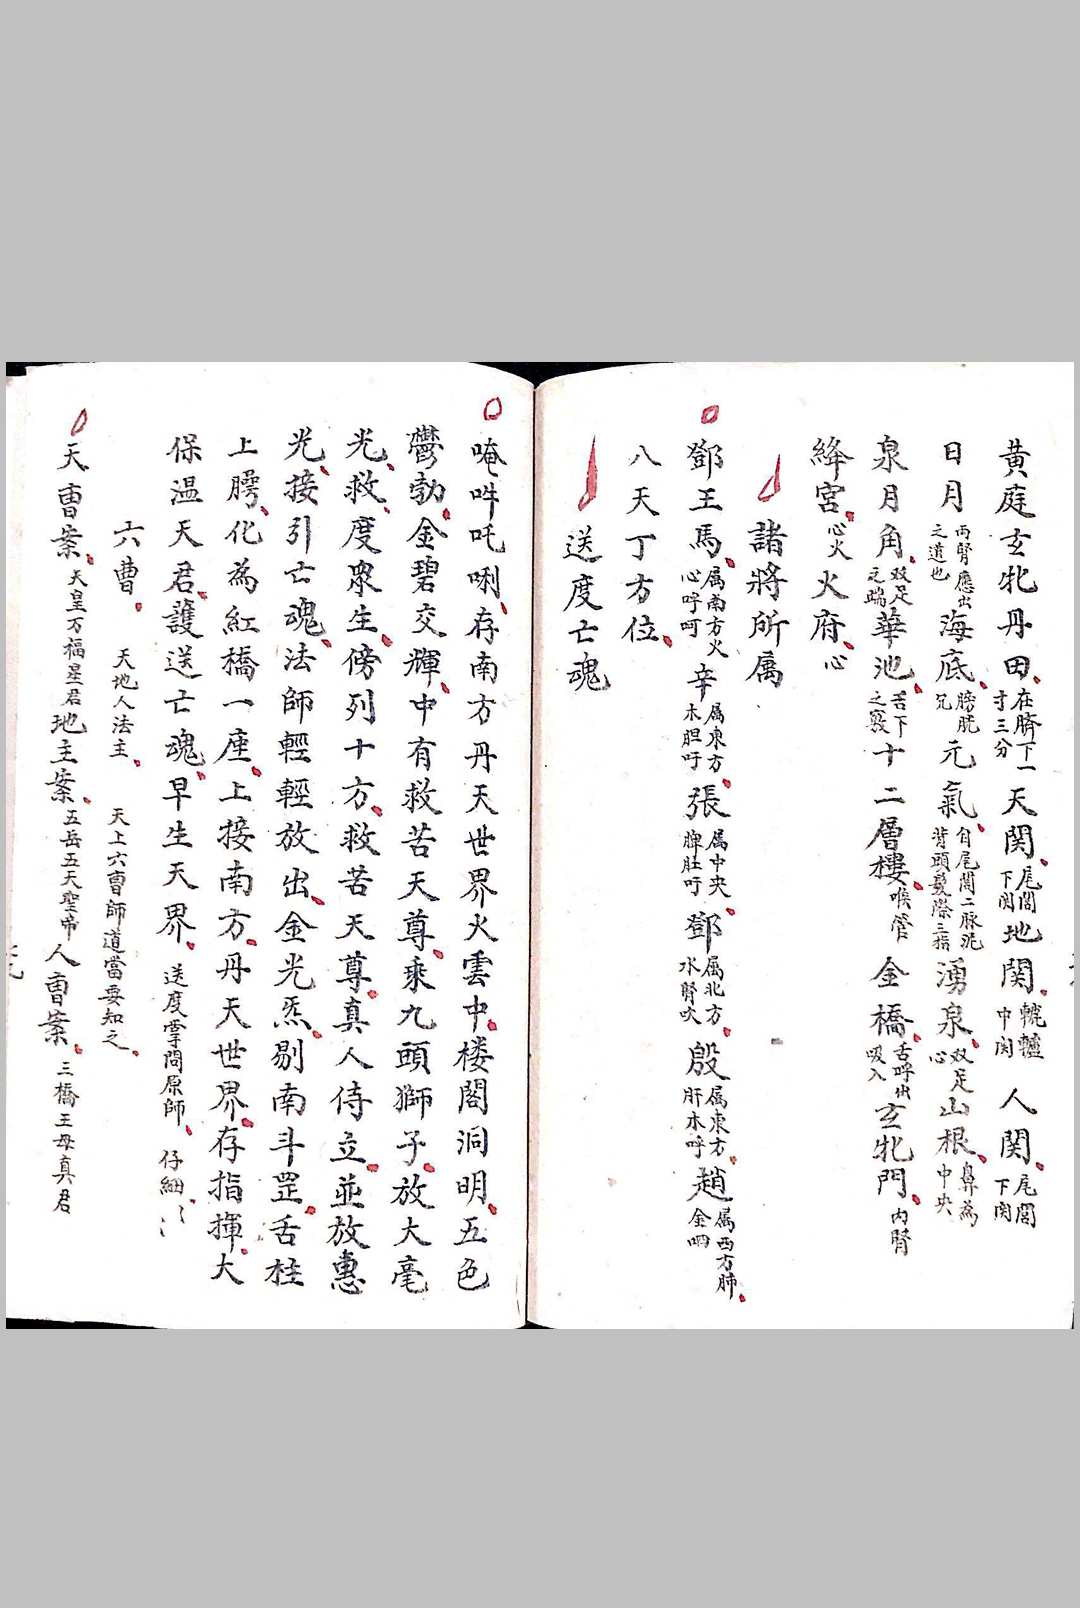 黄庭玄牝丹田在臍下一寸三分天関尾閭下関地関轆轤中関人関尾閭下関
日月両腎應出之道也海底膀胱元氣自尾閭二脉湧泉双足心山根鼻為中央
泉月角双足之端華池舌下之竅十二層樓喉管金橋舌呼出吸入玄牝門内腎
絳宮心火火府心
諸將所属
鄧王馬属南方火心呼呵辛属東方木胆吁張属中央脾肚吁鄧属北方水腎吹殷属東方肝木呼趙属西方肺金呬
八天丁方位
送度亡魂
唵吽吒唎存南方丹天世界火雲中楼閣洞明五色
鬱勃金碧交輝中有救苦天尊乘九頭獅子放大毫
光救度眾生傍列十方救苦天尊真人侍立並放惠
光接引亡魂法師輕輕放出金光炁剔南斗罡舌柱
上腭化為紅橋一座上接南方丹天世界存指揮大
保温天君護送亡魂早生天界送度掌問原師仔細
六曹天地人法主天上六曹師道當要知之
天曹案天皇万福星君地主案五岳五天聖帝人曹案三橋王母真君